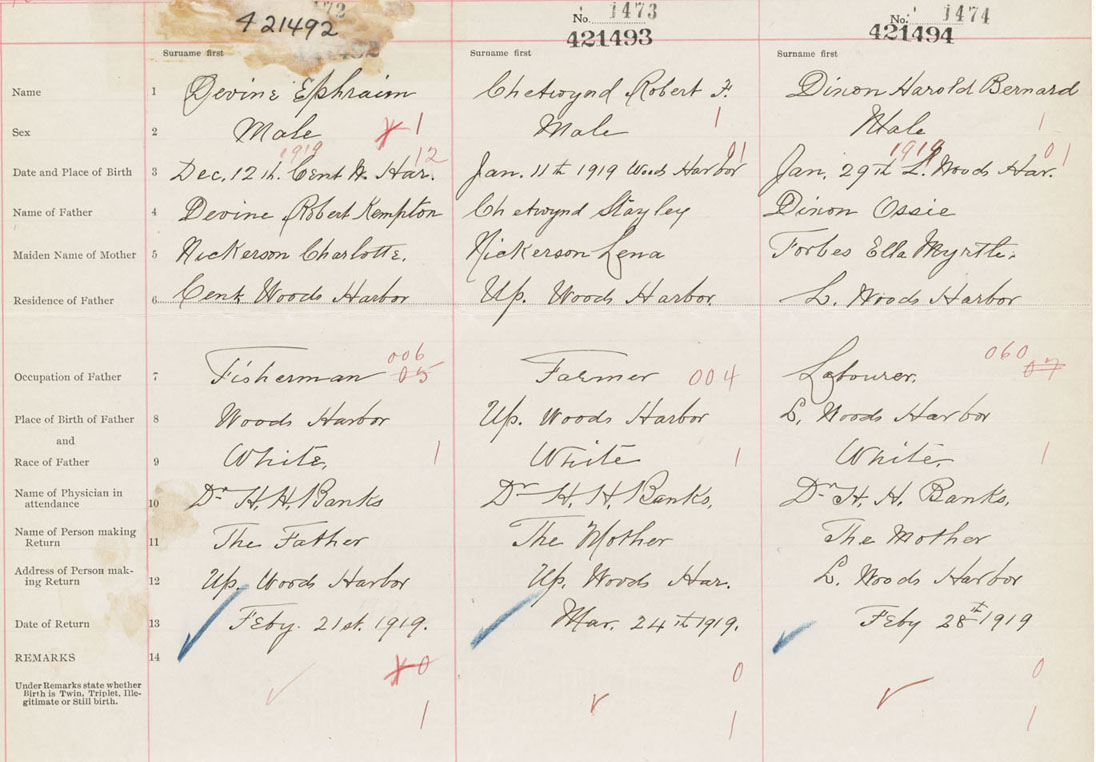 421492
No. 1473
421493
No. 1474
421494
Surname first Surname first Surname first
Name 1 Devine Ephraim Chetwynd Robert F. Dixon Harold Bernard
Sex 2 Male 1 Male 1 Male 1
1919 12 01 1919 01
Date and Place of Birth 3 Dec. 12th. Cent W. Har. Jan. 11th 1919 Woods Harbor Jan. 29th L. Woods Har.
Name of Father 4 Devine Robert Kempton Chetwynd Stayley Dixon Ossie
Maiden Name of Mother 5 Nickerson Charlotte. Nickerson Lena Forbes Ella Myrtle.
Residence of Father 6 Cent Woods Harbor Up. Woods Harbor. L. Woods Harbor
006 060
Occupation of Father 7 Fisherman 05 Farmer 004 Labourer. 07
Place of Birth of Father 8 Woods Harbor Up. Woods Harbor L. Woods Harbor
and
Race of Father 9 White, 1 White 1 White. 1
Name of Physician in
attendance 10 Dr H. H. Banks Dr H. H. Banks, Dr H. H. Banks,
Name of Person making
Return 11 The Father The Mother The Mother
Address of Person mak-
ing Return 12 Up. Woods Harbor Up. Woods Har. L. Woods Harbor
Date of Return 13 Feby. 21st. 1919. Mar. 24th 1919. Feby 28th 1919
REMARKS 14 0 0 0
Under Remarks state whether
Birth is Twin, Triplet, Ille-
gitimate or Still birth.
1 1 1